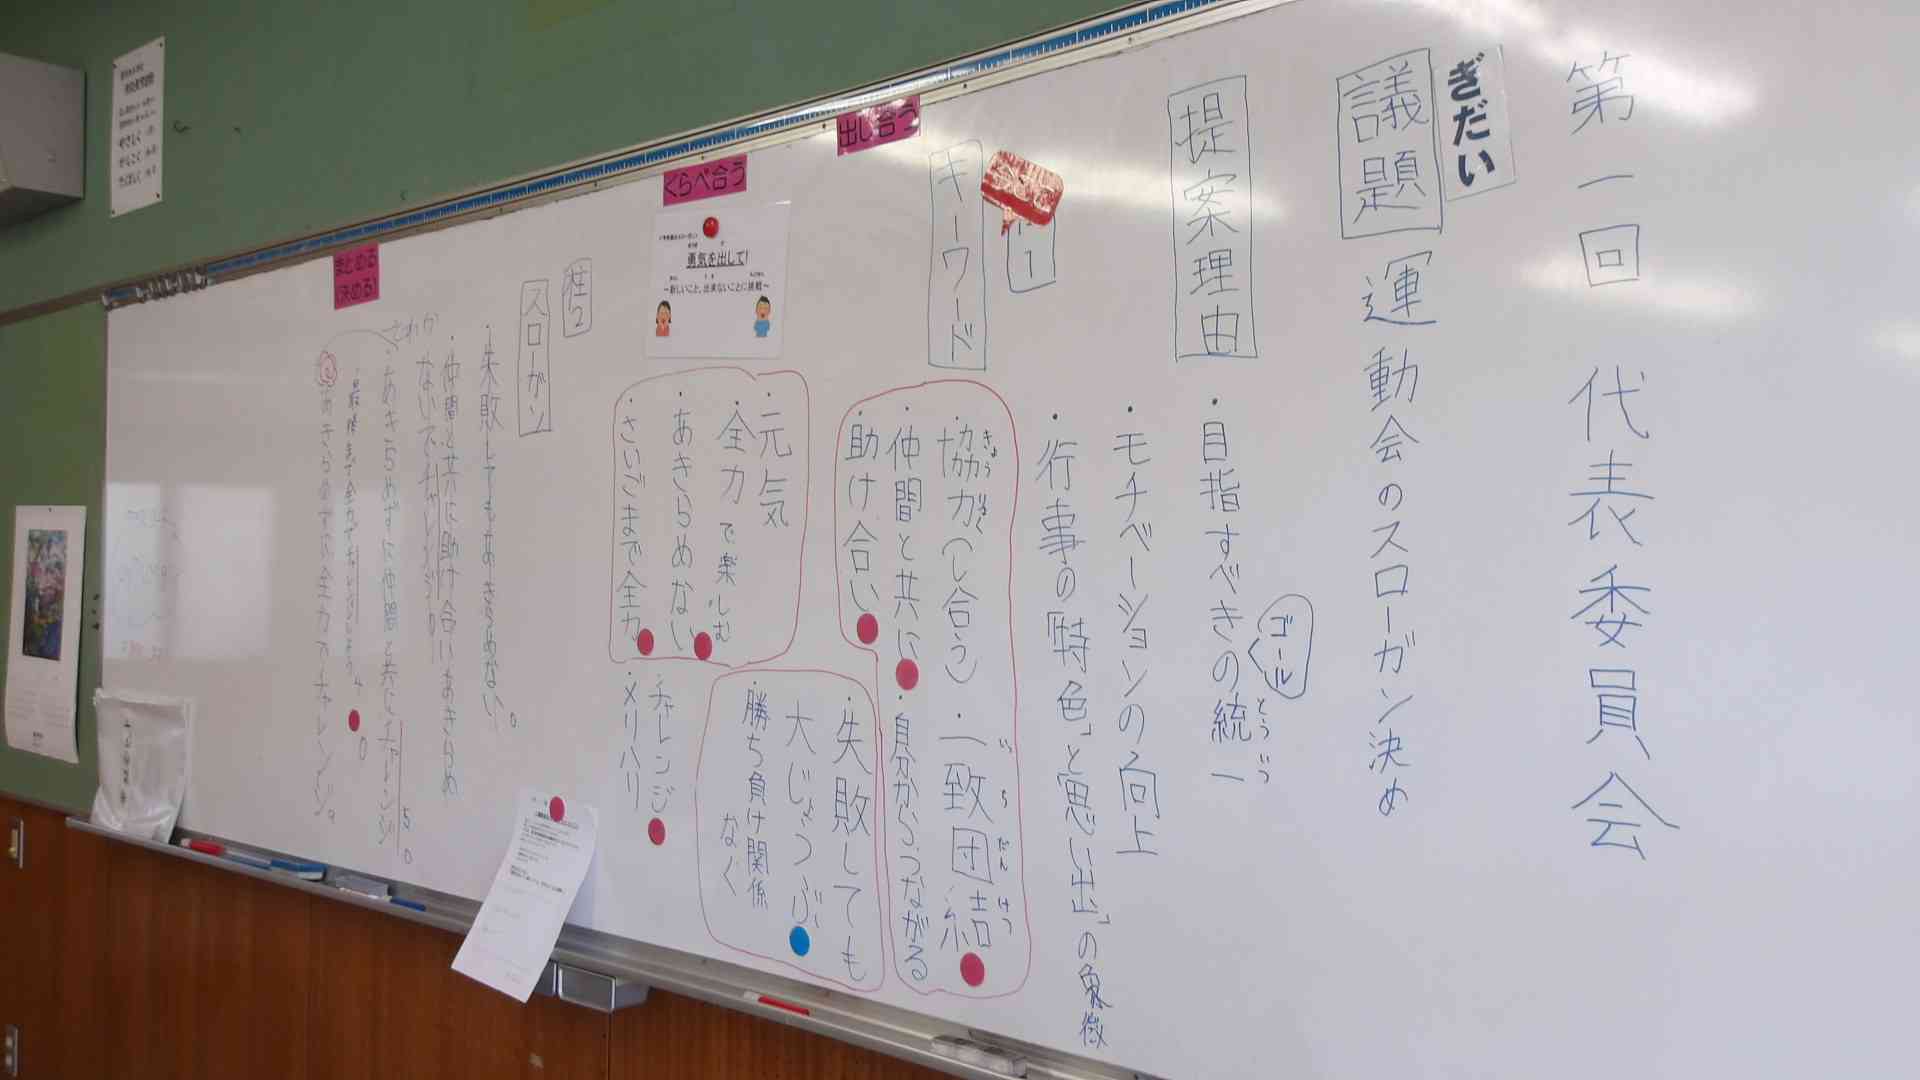 第一回 代表委員会
ぎだい
議題 運動会のスローガン決め
提案理由
・目指すべきの統一
ゴール
とういつ
・モチベーションの向上
・行事の「特色」と「思い出」の象徴
出し合う
1
キーワード
・協力(し合う)
きょうりょく
・一致団結
いっちだんけつ
・仲間と共に
・自分からつながる
・助け合い
・失敗しても
大じょうぶ
・勝ち負け関係
なく
くらべ合う
勇気を出して!
~新しいこと、出来ないことに挑戦~
・元気
・全力で楽しむ
・あきらめない
・さいごまで全力
・チャレンジ
・メリハリ
柱2
スローガン
まとめる
(決める)
・失敗してもあきらめない 0
・仲間と共に助け合いあきらめ
ないでチャレンジ 0
・あきらめずに仲間と共にチャレンジ 5 0